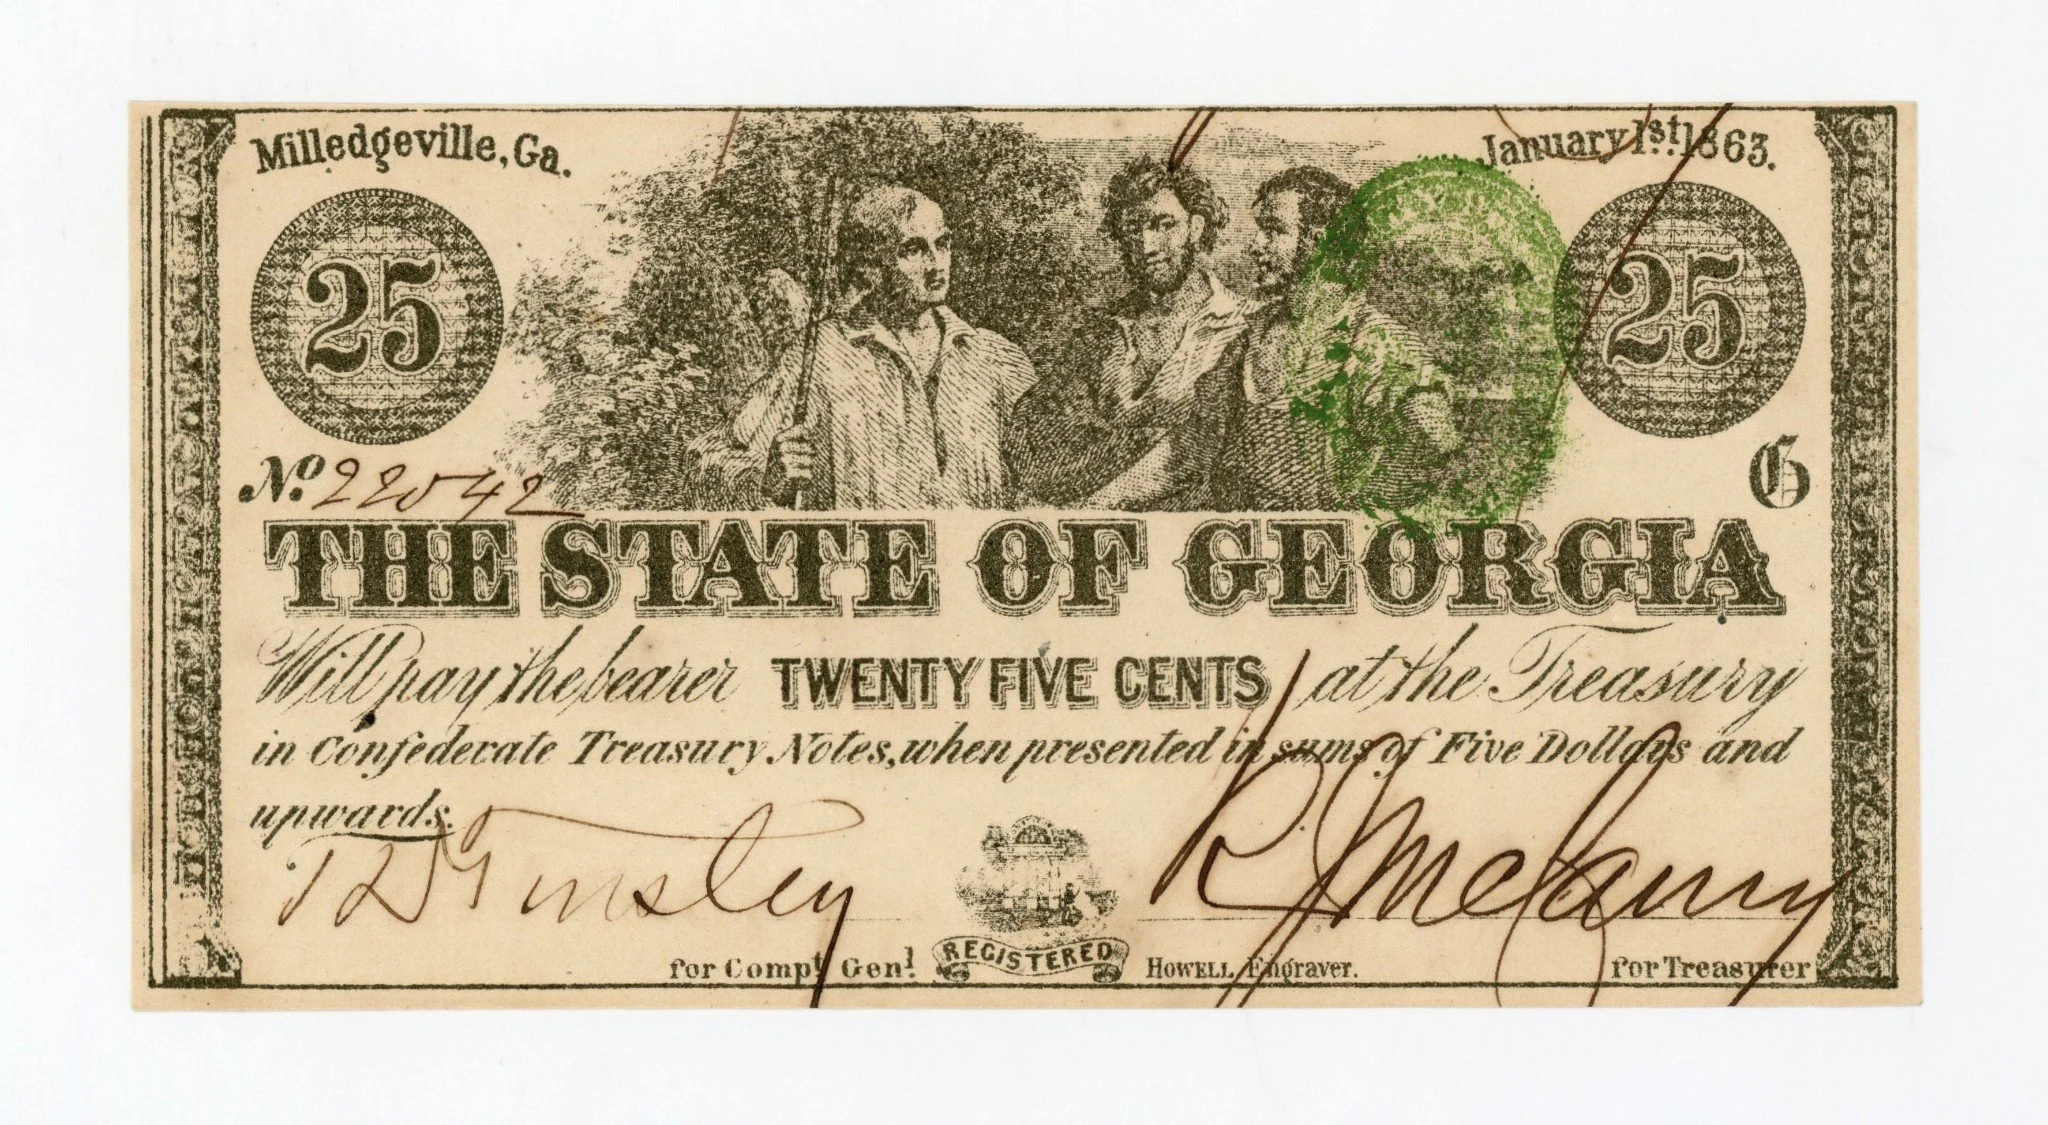 Milledgeville, Ga.
January 1st. 1863.
25
25
No. 22042
G
THE STATE OF GEORGIA
Will pay the bearer TWENTY FIVE CENTS at the Treasury
in Confederate Treasury Notes, when presented in sums of Five Dollars and
upwards.
Tinsley
for Compt. Genl.
REGISTERED
HOWELL Engraver.
for Treasurer